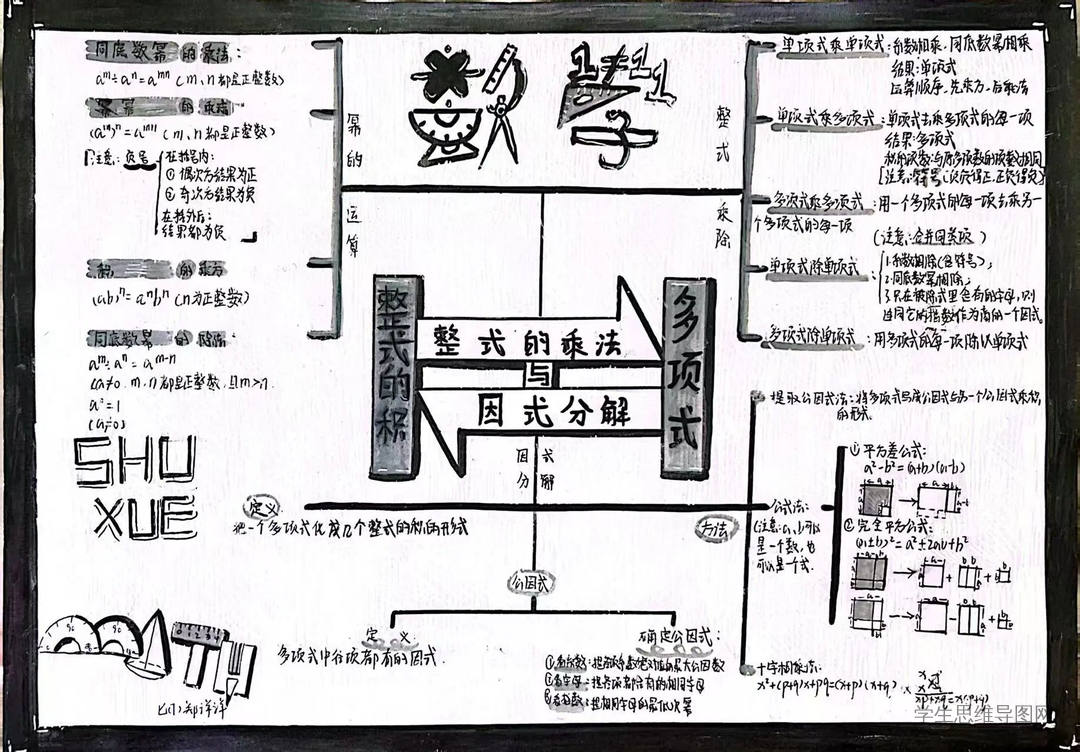 同底数幂的乘法:
aᵐ÷aⁿ=aᵐⁿ (m、n都是正整数)
幂的乘方
(aᵐ)ⁿ=aᵐⁿ (m、n都是正整数)
注意:负号
在括号内:
①偶次方结果为正
②奇次方结果为负
在括号外:
结果都为负
积的乘方
(ab)ⁿ=aⁿbⁿ (n为正整数)
同底数幂的除法:
aᵐ÷aⁿ=aᵐ⁻ⁿ
(a≠0 m、n都是正整数,且m>n)
a⁰=1
(a≠0)
SHU
XUE
幂的运算
数学
1≠11
整式乘除
单项式乘单项式:系数相乘,同底数幂相乘
结果:单项式
运算顺序:先乘方,后乘法
单项式乘多项式:单项式去乘多项式的每一项
结果:多项式
[注意:符号(负负得正,正负得负)
多项式乘多项式:用一个多项式的每一项去乘另一
个多项式的每一项
(注意:合并同类项)
单项式除单项式
1.系数相除(含符号);
2.同底数幂相除;
3.只在被除式里含有的字母,则
连同它的指数作为商的一个因式。
多项式除单项式:用多项式的每一项除以单项式
整式的积
整式的乘法
与
因式分解
多项式
因式分解
定义:
把一个多项式化成几个整式的积的形式
方法
提取公因式法:将多项式写成公因式与另一个公因式乘积
的形式.
公式法:
(注意:a、b可以
是一个数,也
可以是一个式.
①平方差公式:
a²-b²=(a+b)(a-b)
②完全平方公式:
(a±b)²=a²±2ab+b²
十字相乘法:
x²+(p+q)x+pq=(x+p)(x+q)
公因式
定义:
多项式中各项都有的因式.
确定公因式:
①看系数:找各项系数绝对值的最大公因数
②看字母:找各项都含有的相同字母
③看指数:找相同字母的最低次幂
学生思维导图网